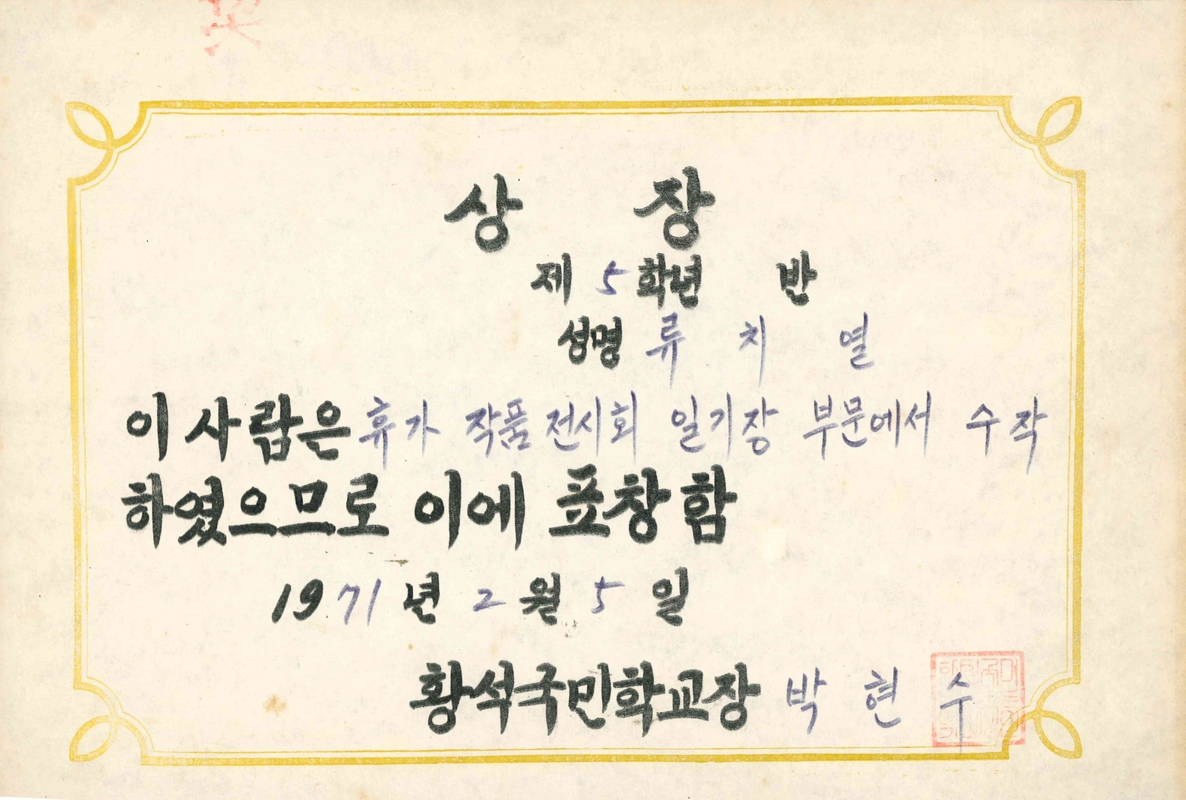 상 장
제 5 학년 반
성명 류 치 열
이 사람은 휴가 작품 전시회 일기장 부문에서 수작
하였으므로 이에 표창함
1971년 2월 5일
황석국민학교장 박 현 수